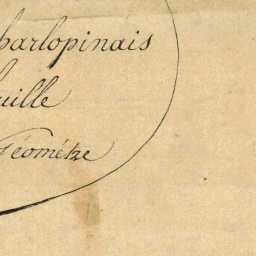 harlopinais
uille
Géomètre